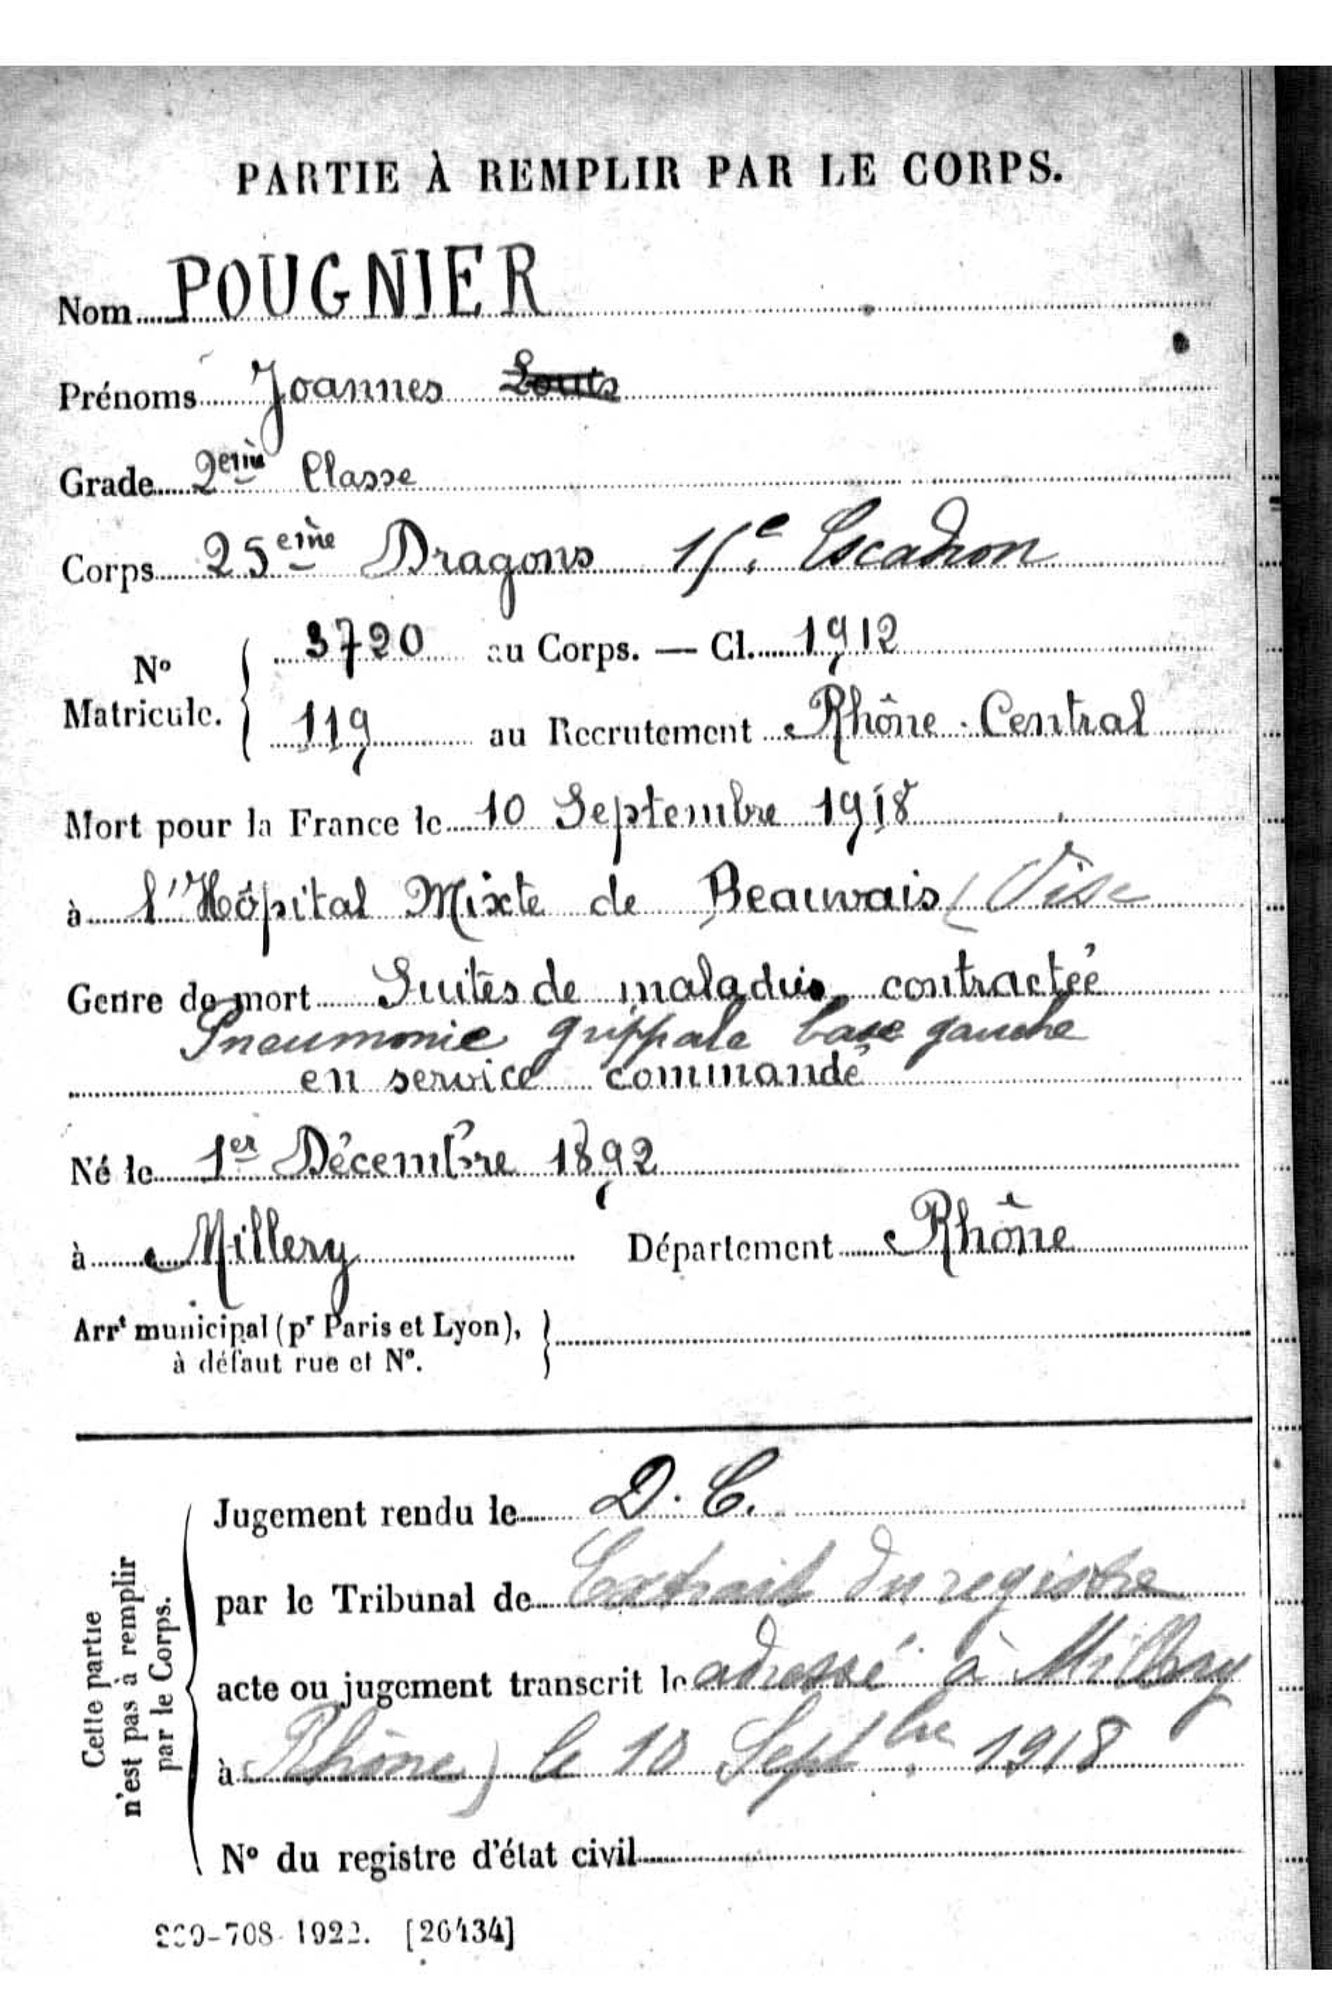 PARTIE À REMPLIR PAR LE CORPS.
Nom POUGNIER
Prénoms Joannes Louis
Grade 2eme Classe
Corps 25eme Dragons 15e Escadron
No Matricule. { 3720 au Corps. — Cl. 1912
119 au Recrutement Rhône-Central
Mort pour la France le 10 Septembre 1918
à l'Hôpital Mixte de Beauvais (Oise
Genre de mort Suites de maladie contractée
Pneumonie grippale base gauche
en service commandé
Né le 1er Décembre 1892
à Millery Département Rhône
Arrt municipal (pr Paris et Lyon), }
à défaut rue et No.
Cette partie
n'est pas à remplir
par le Corps.
Jugement rendu le D. C.
par le Tribunal de Extrait du registre
acte ou jugement transcrit le adressé à Millery
à Rhône) le 10 Septbre 1918
No du registre d'état civil
708-1922. [26434]